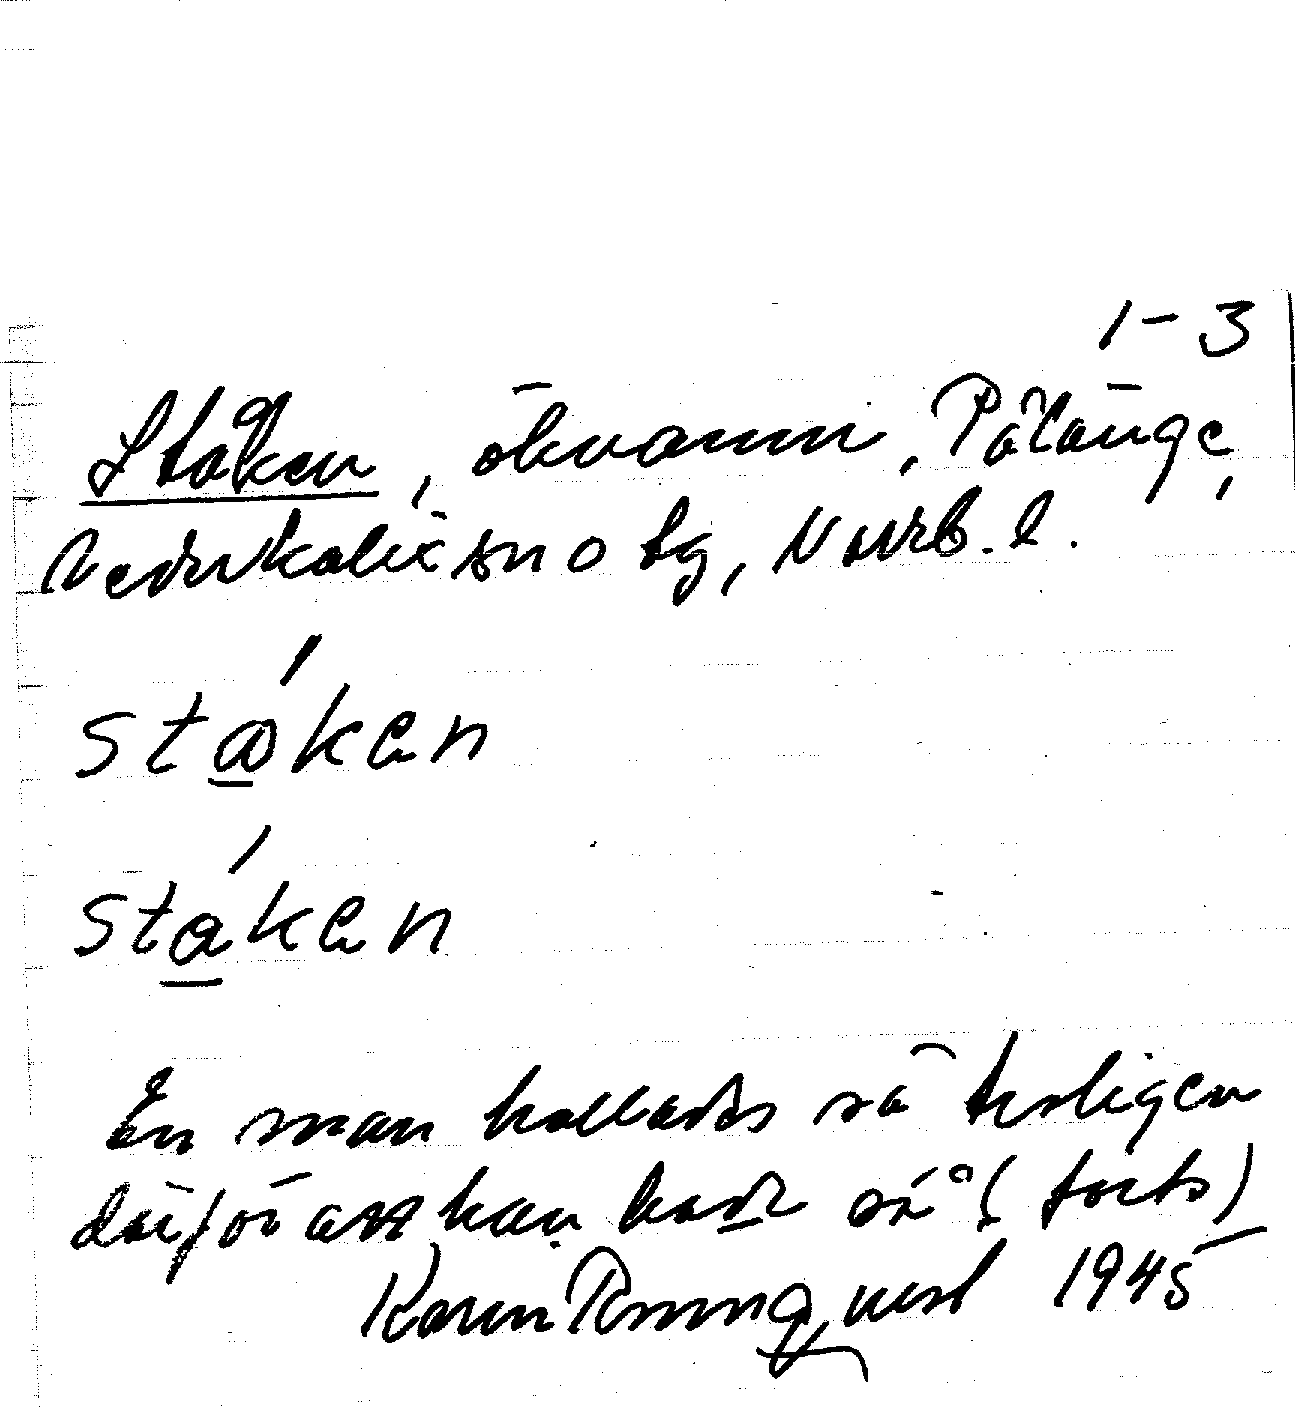 1-3
Ståken, öknamn, Pålänge,
Nederkalix sn o tg, Norrb. l.
ståken
ståken
En man kallades så troligen
därför att han hade så (forts)
Karin Ronnqvist 1945